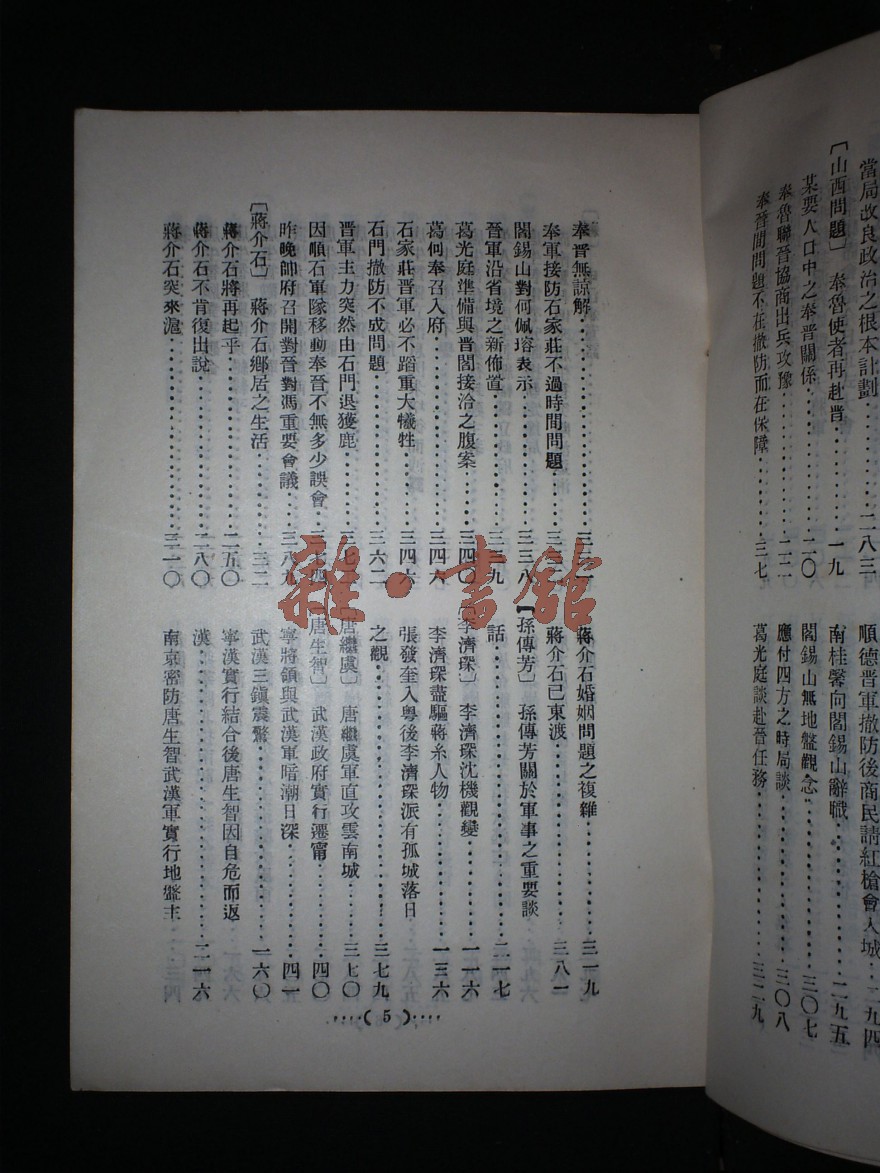 當局改良政治之根本計劃……二八三
〔山西問題〕 奉魯使者再赴晉……一九
某要人口中之奉晉關係……二〇
奉魯聯晉協商出兵攻豫……二二
奉晉間問題不在撤防而在保障……三七
順德晉軍撤防後商民請紅槍會入城…二九四
南桂馨向閻錫山辭職……二九五
閻錫山無地盤觀念……三〇七
應付四方之時局談……三〇八
葛光庭談赴晉任務……三二九
奉晉無諒解……
奉軍接防石家莊不過時間問題……
閻錫山對何佩瑢表示……三三八
晉軍沿省境之新佈置……三三九
葛光庭準備與晉閻接洽之腹案……三四〇
葛何奉召入府……三四六
石家莊晉軍必不蹈重大犧牲……三四六
石門撤防不成問題……三六二
晉軍主力突然由石門退獲鹿……
因順石軍隊移動奉晉不無多少誤會…三七四
昨晚帥府召開對晉對馮重要會議……三八九
〔蔣介石〕 蔣介石鄉居之生活……三二
蔣介石將再起乎……二五〇
蔣介石不肯復出說……二八〇
蔣介石突來滬……三一〇
蔣介石婚姻問題之複雜……三一九
蔣介石已東渡……三八一
〔孫傳芳〕 孫傳芳關於軍事之重要談
話……二一七
〔李濟琛〕 李濟琛沈機觀變……一一六
李濟琛盡驅蔣系人物……一三六
張發奎入粵後李濟琛派有孤城落日
之觀……三七九
〔唐繼虞〕 唐繼虞軍直攻雲南城……三七〇
〔唐生智〕 武漢政府實行遷甯……四〇
寧將領與武漢軍暗潮日深……四一
武漢三鎮震驚……一六〇
寧漢實行結合後唐生智因自危而返
漢……二一六
南京密防唐生智武漢軍實行地盤主
····( 5 )····
雜·書館